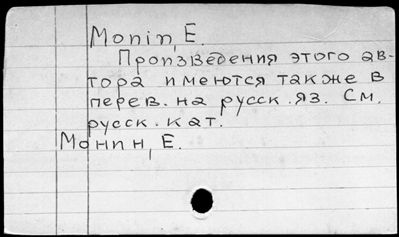 Monin, E.
Произведения этого ав-
тора имеются также в
перев. на русск. яз. См.
русск. кат.
Монин, Е.